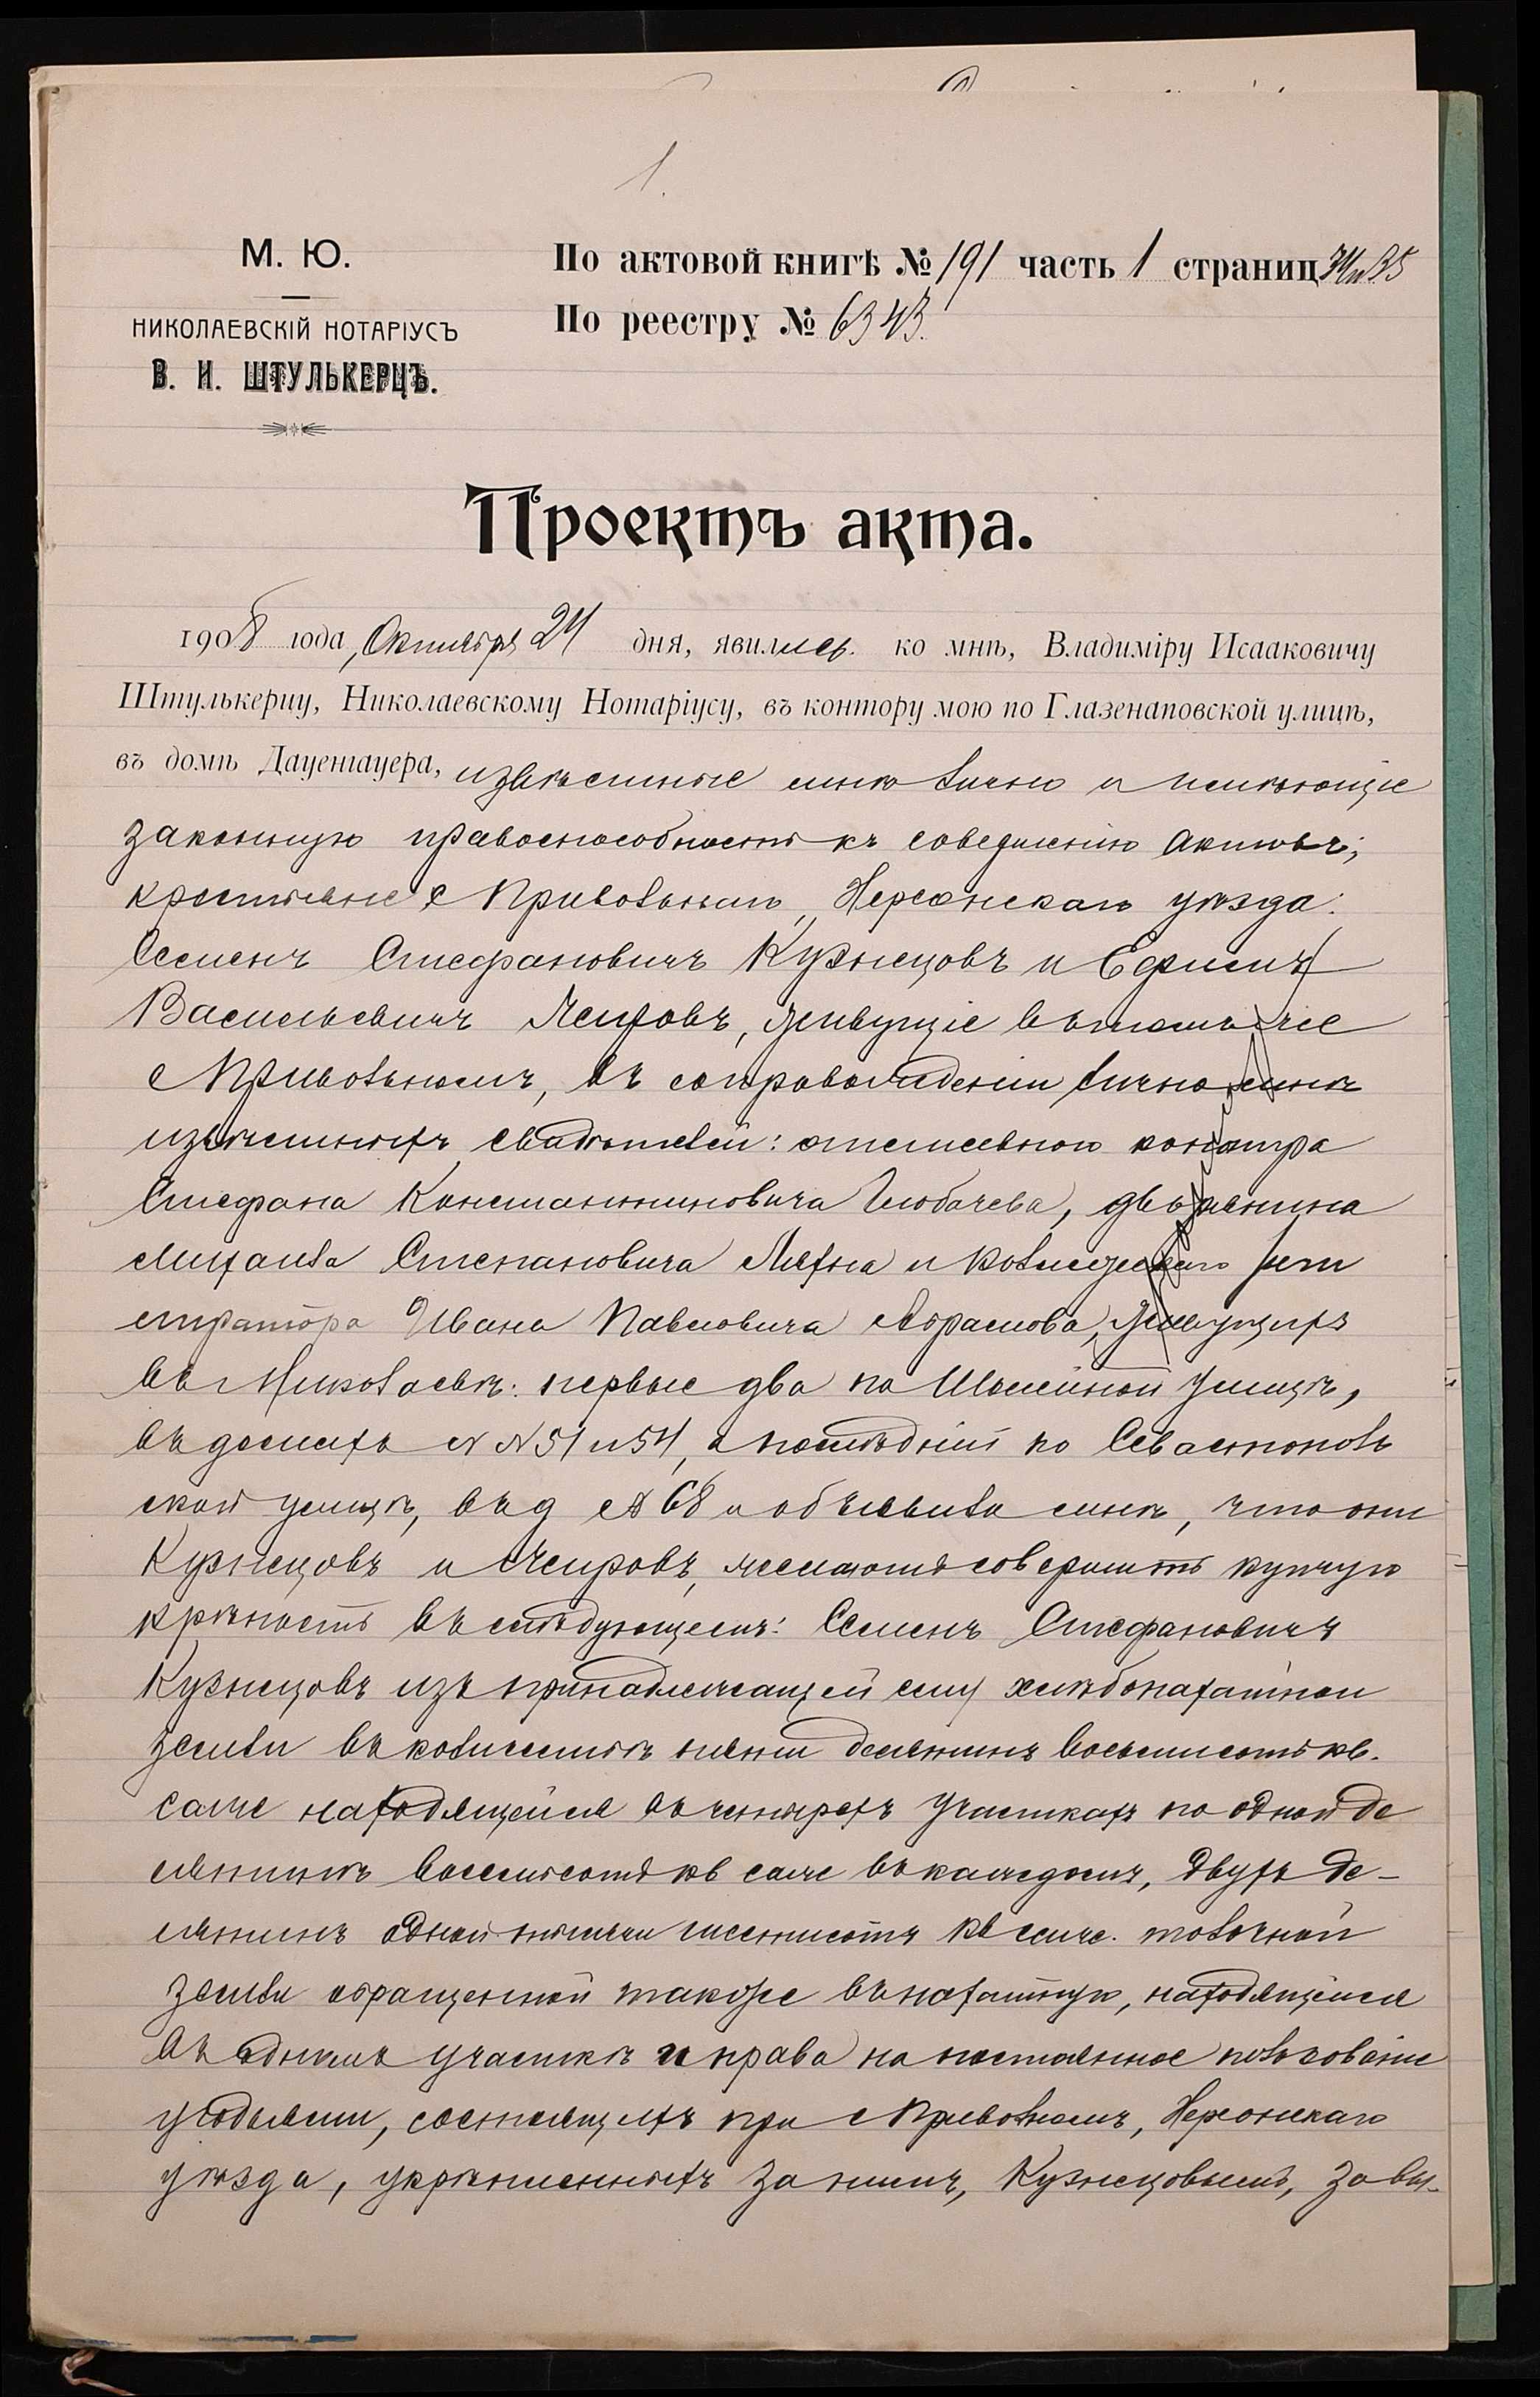 1.
М. Ю.
НИКОЛАЕВСКІЙ НОТАРІУСЪ
В. И. ШТУЛЬКЕРЦЪ.
По актовой книгѣ № 191 часть 1 страниц 34 и 35
По реестру № 6343.
Проектъ акта.
1908 года, Октября 24 дня, явились ко мнѣ, Владиміру Исааковичу
Штулькерцу, Николаевскому Нотаріусу, въ контору мою по Глазенаповской улицѣ,
въ домѣ Дауенгауера, извѣстные мнѣ лично и имѣющіе
законную правоспособность къ совершенію актовъ;
крестьяне с Привольнаго, Херсонскаго уѣзда:
Семенъ Стефановичъ Кузнецовъ и Ефимъ
Васильевичъ живущіе въ томъ же
с Привольномъ, въ сопровожденіи лично мнѣ
извѣстныхъ свидѣтелей: отставного
Стефана Константиновича дворянина
Михаила Степановича и коллежскаго реги
стратора Ивана Павловича Абрамова, живущихъ
въ Николаевѣ: первые два по улицѣ,
въ домахъ № № 51 и 54, а послѣдній по Севастополь
ской улицѣ, въ д № 68 и объявили мнѣ, что они
Кузнецовъ и желаютъ совершить купчую
крѣпость въ слѣдующемъ: Семенъ Стефановичъ
Кузнецовъ изъ принадлежащей ему хлѣбопахатной
земли въ количествѣ пяти десятинъ восьмисотъ кв.
саже находящейся въ четырехъ участкахъ по одной де
сятинѣ восемисотъ кв саже въ каждомъ, двухъ де-
сятинъ одной тысячи шестисотъ кв саже. толочной
земли обращенной также въ пахатную, находящейся
въ одномъ участкѣ и права на постоянное пользованіе
угодьями, состоящихъ при с Привольномъ, Херсонскаго
уѣзда, укрѣпленныхъ за нимъ, Кузнецовымъ, за вы-